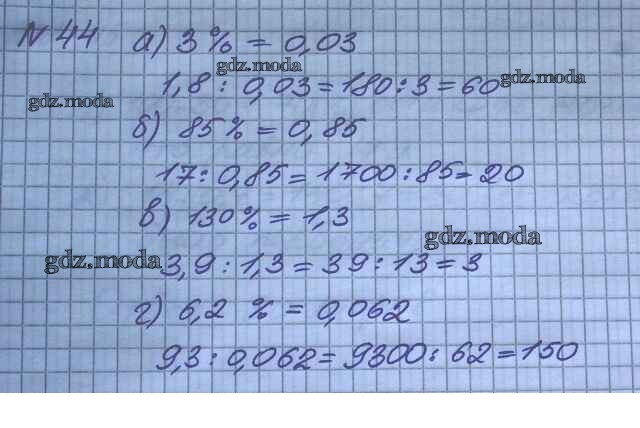 № 44 а) 3% = 0,03
gdz.moda
1,8 : 0,03 = 180 : 3 = 60
gdz.moda
gdz.moda
б) 85% = 0,85
17 : 0,85 = 1700 : 85 = 20
в) 130% = 1,3
gdz.moda
gdz.moda
3,9 : 1,3 = 39 : 13 = 3
г) 6,2 % = 0,062
9,3 : 0,062 = 9300 : 62 = 150